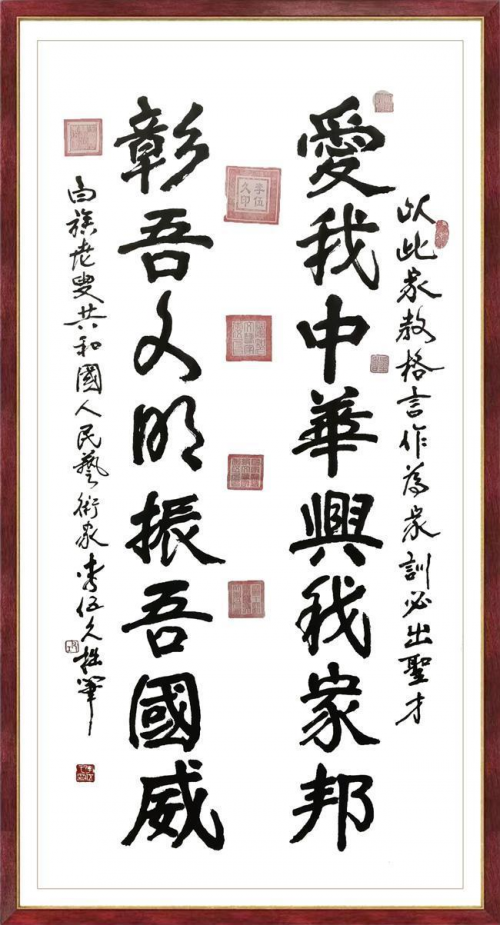 以此家教格言作為家訓必出聖才
愛我中華興我家邦
彰吾文明振吾國威
白族老叟共和國人民藝術家李伍久拙筆
李伍久印